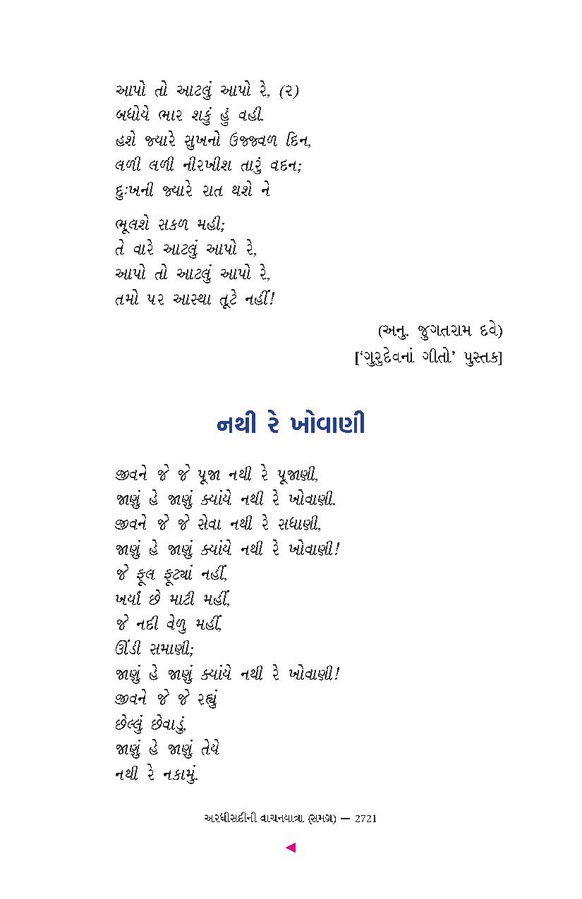 આપો તો આટલું આપો રે, (૨)
બધોયે ભાર શકું હું વહી.
હશે જ્યારે સુખનો ઉજ્જ્વળ દિન,
લળી લળી નીરખીશ તારું વદન;
દુઃખની જ્યારે રાત થશે ને
ભૂલશે સકળ મહી;
તે વારે આટલું આપો રે,
આપો તો આટલું આપો રે,
તમો પર આસ્થા તૂટે નહીં!
(અનુ. જુગતરામ દવે)
[‘ગુરુદેવનાં ગીતો’ પુસ્તક]
નથી રે ખોવાણી
જીવને જે જે પૂજા નથી રે પૂજાણી,
જાણું હે જાણું ક્યાંયે નથી રે ખોવાણી.
જીવને જે જે સેવા નથી રે સધાણી,
જાણું હે જાણું ક્યાંયે નથી રે ખોવાણી!
જે ફૂલ ફૂટ્યાં નહીં,
ખર્યાં છે માટી મહીં,
જે નદી વેળુ મહીં,
ઊંડી સમાણી;
જાણું હે જાણું ક્યાંયે નથી રે ખોવાણી!
જીવને જે જે રહ્યું
છેલ્લું છેવાડું,
જાણું હે જાણું તેયે
નથી રે નકામું.
અરધીસદીની વાચનયાત્રા (સમગ્ર) — 2721